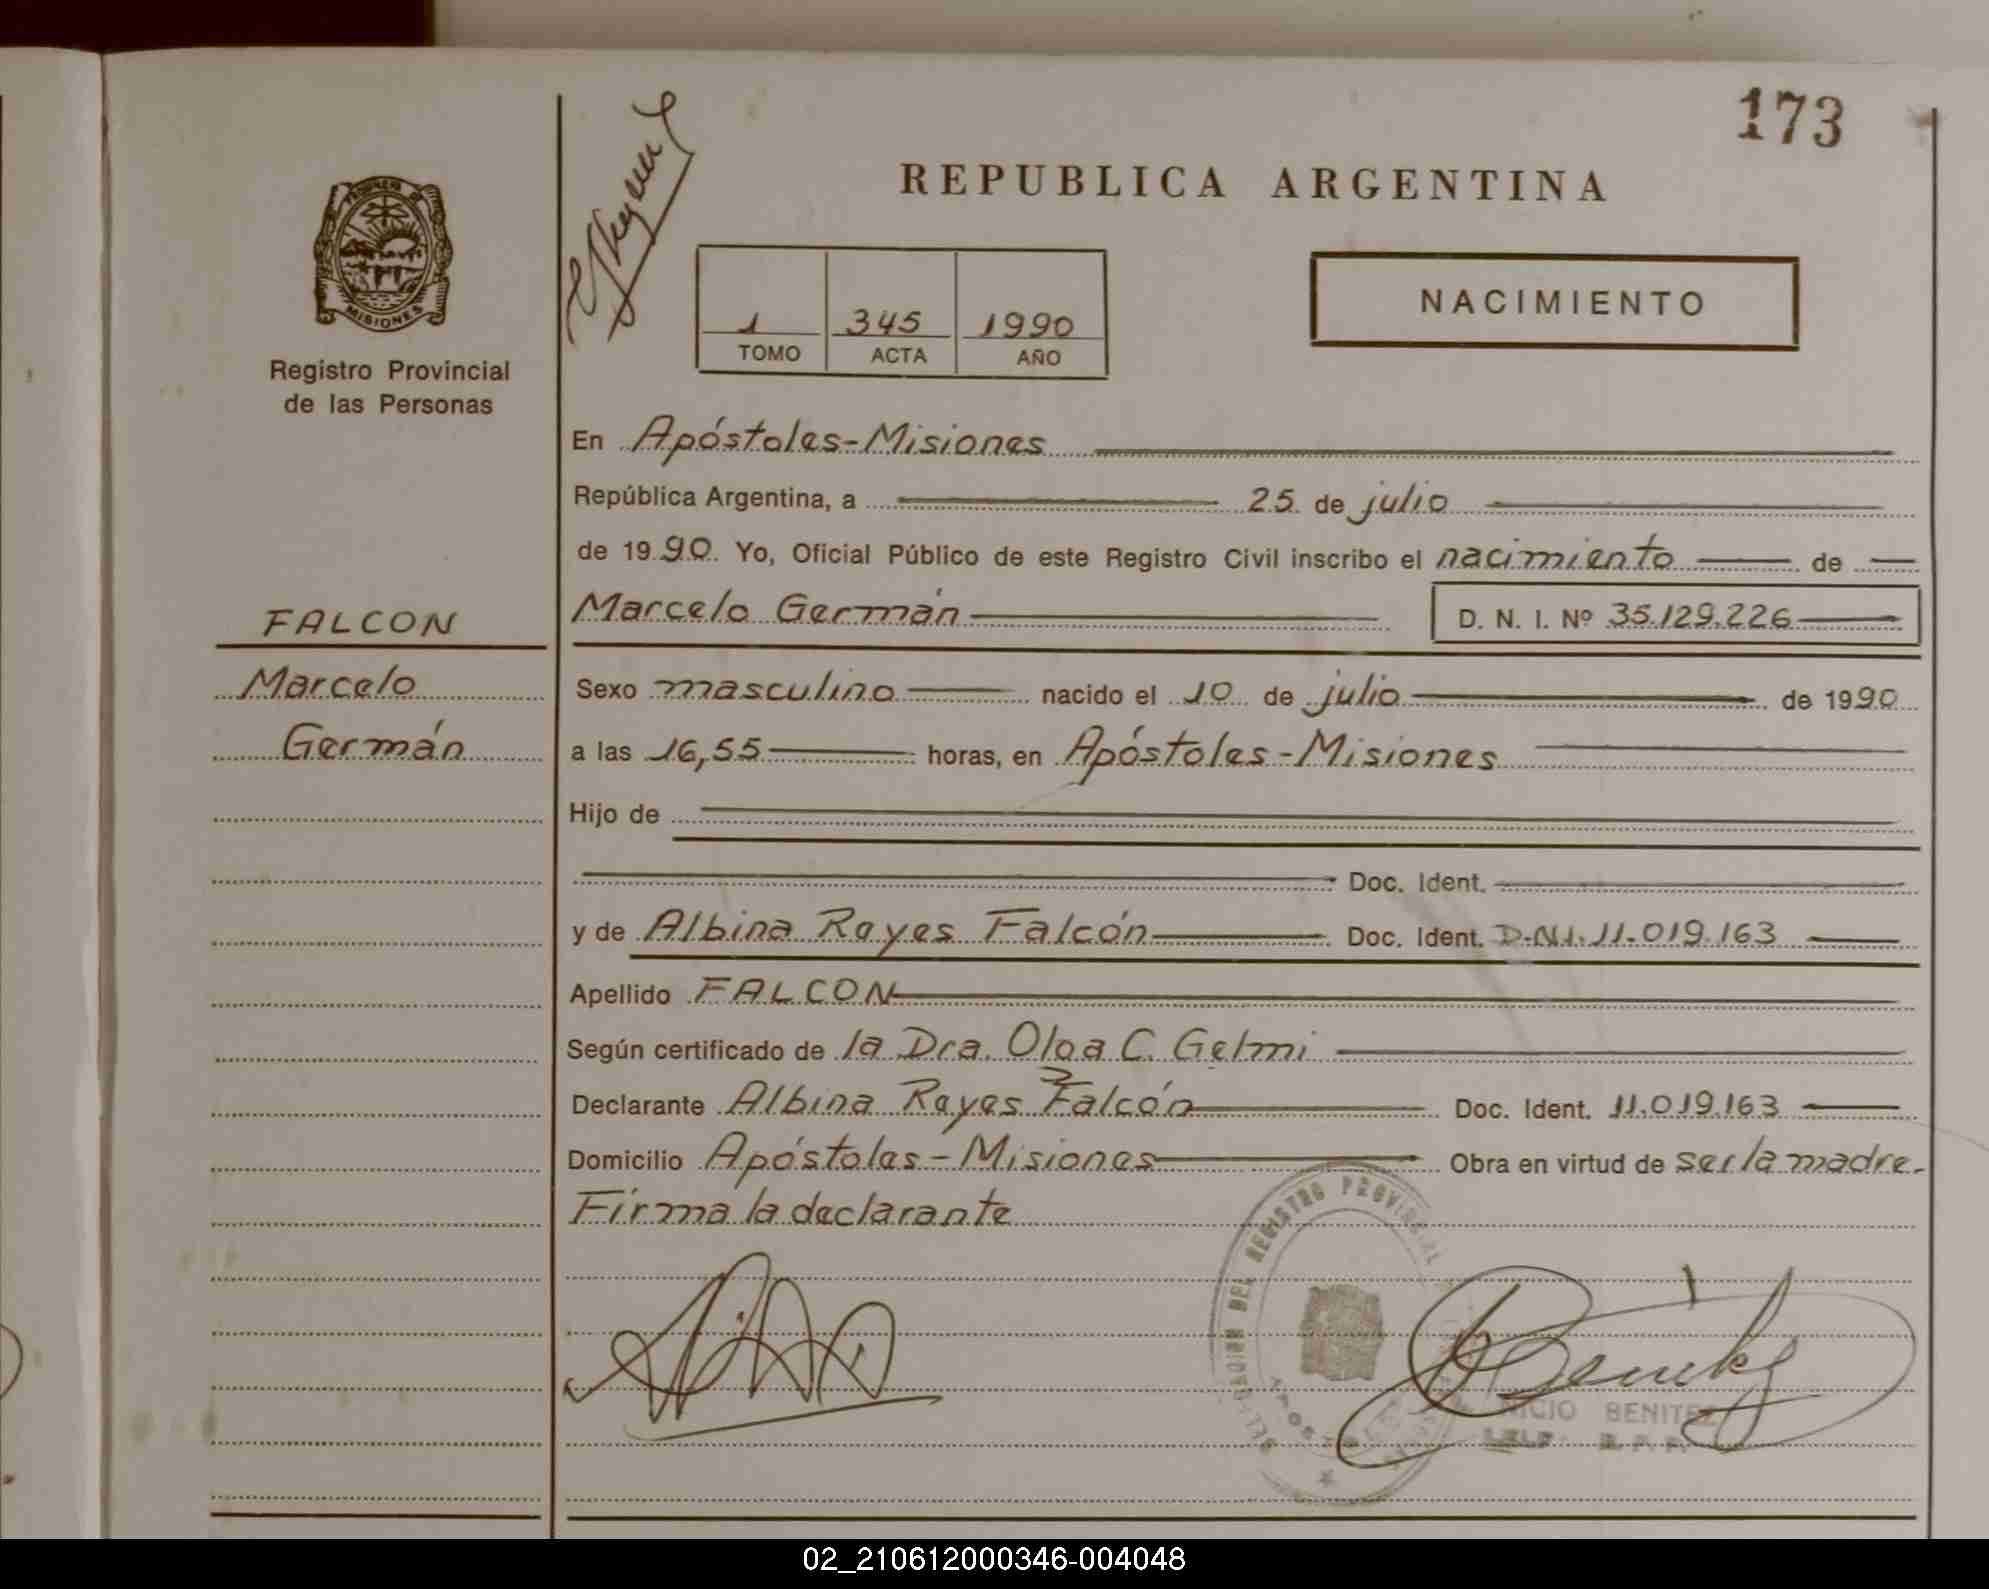 173
REPUBLICA ARGENTINA
PROVINCIA DE
MISIONES
Registro Provincial
de las Personas
NACIMIENTO
1 345 1990
TOMO ACTA AÑO
En Apóstoles-Misiones
República Argentina, a 25 de julio
de 1990 Yo, Oficial Público de este Registro Civil inscribo el nacimiento de
FALCON
Marcelo Germán D. N. I. Nº 35.129.226
Marcelo
Sexo masculino nacido el 10 de julio de 1990
Germán
a las 16,55 horas, en Apóstoles-Misiones
Hijo de
Doc. Ident.
y de Albina Reyes Falcón Doc. Ident. D.N.I. 11.019.163
Apellido FALCON
Según certificado de la Dra. Olga C. Gelmi
Declarante Albina Reyes Falcón Doc. Ident. 11.019.163
Domicilio Apóstoles-Misiones Obra en virtud de ser la madre.
Firma la declarante
DEL REGISTRO PROVINCIAL
Benitez
NICIO BENITEZ
02_210612000346-004048